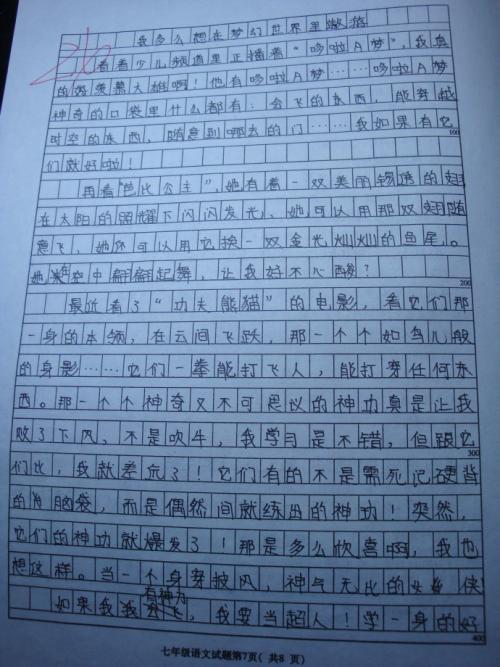 26
我多么想在梦幻世界里遨游
看着少儿频道里正播着“哆啦A梦”，我真
的好羡慕大雄啊！他有哆啦A梦……哆啦A梦
神奇的口袋里什么都有：会飞的东西，能穿越
时空的东西，随意到哪去的门……我如果有它
100
们就好啦！
再看“芭比公主”，她有着一双美丽锦透的翅
在太阳的照耀下闪闪发光，她可以用那双翅随
意飞，她还可以用它换一双金光灿灿的鱼尾。
她在空中翩翩起舞，让我好不心
200
最近看了“功夫熊猫”的电影，看它们那
一身的本领，在云间飞跃，那一个个如鸟儿般
的身影……它们一拳能打飞人，能打穿任何东
西。那一个个神奇又不可思议的神功真是让我
败了下风，不是吹牛，我学习是不错，但跟它
300
们比，我就差远了！它们有的不是需死记硬背
的 脑袋，而是偶然间就练出的神功！突然，
它们的神功就爆发了！那是多么欣喜啊，我也
想这样。当一个身穿披风，神气无比的 侠
如果我有神力 飞，我要当超人！学一身的好
400
七年级语文试题第7页（共8页）